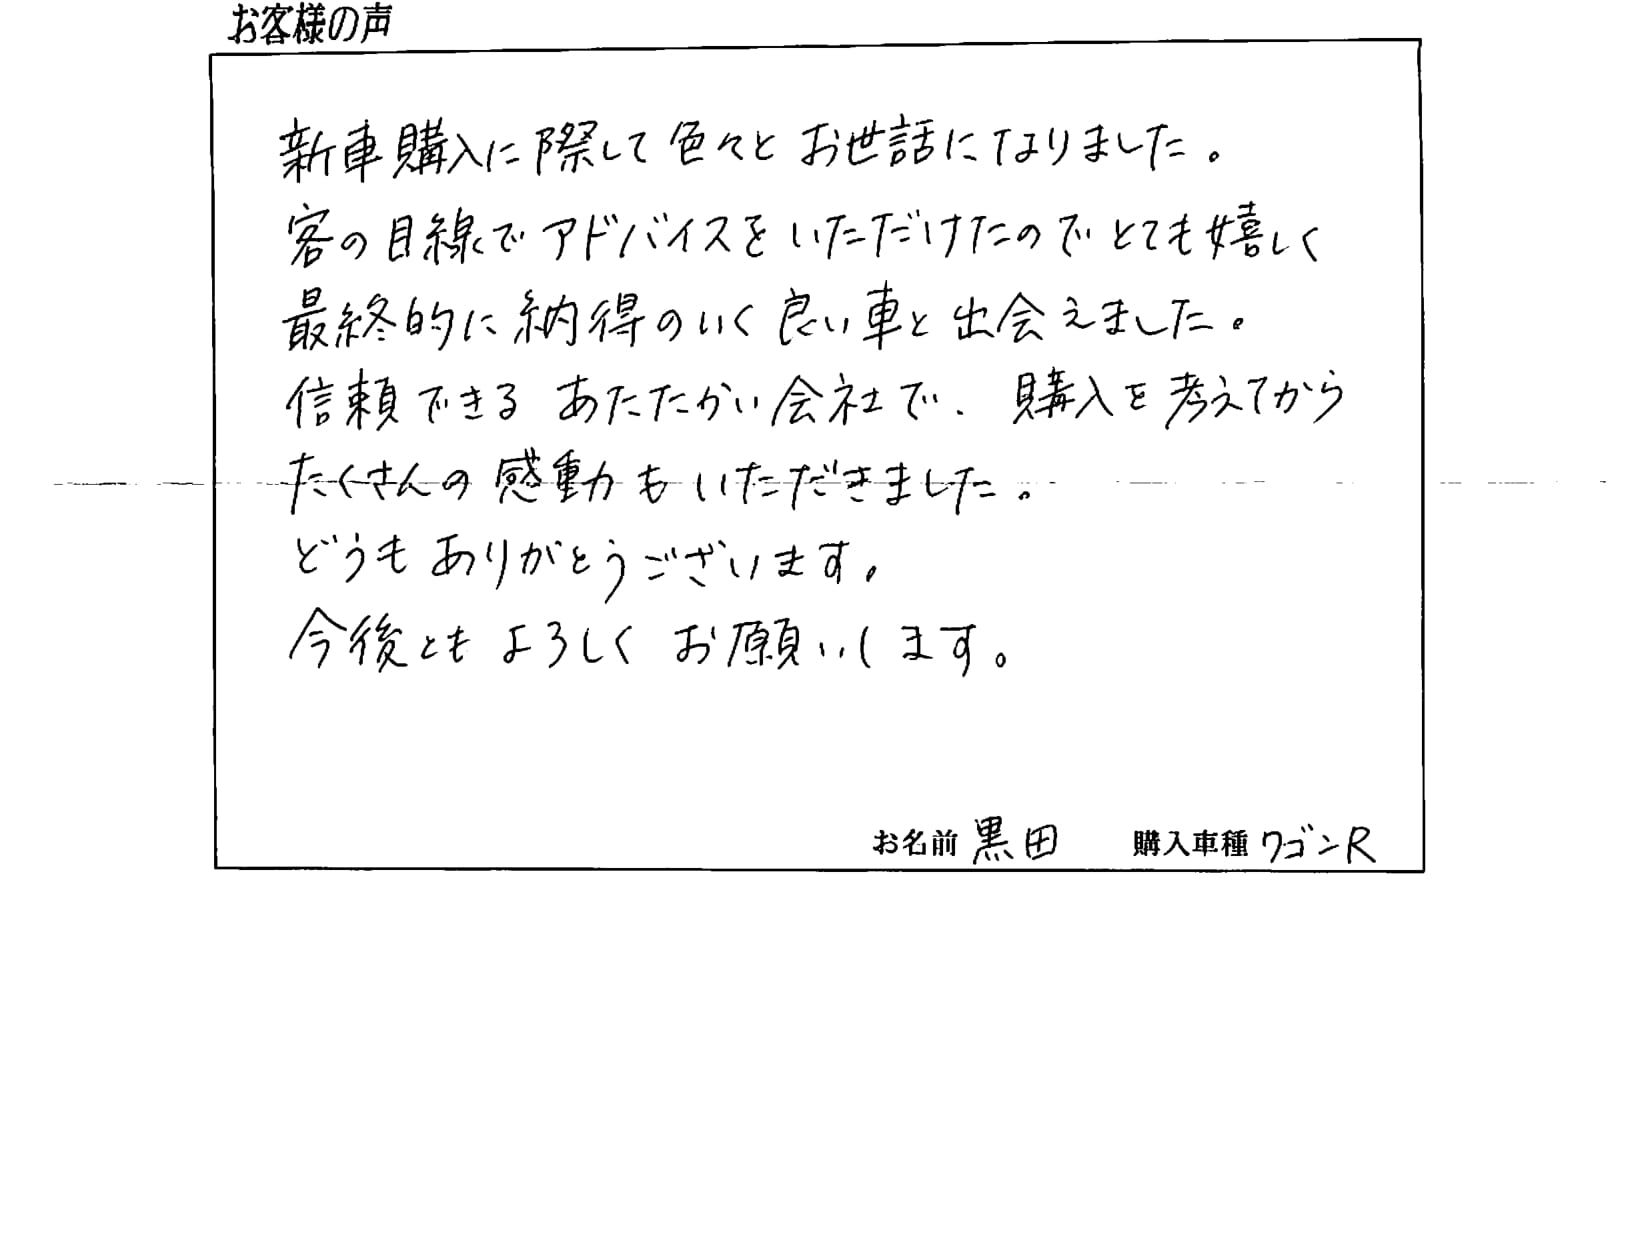 お客様の声
新車購入に際して色々とお世話になりました。
客の目線でアドバイスをいただけたのでとても嬉しく
最終的に納得のいく良い車と出会えました。
信頼できるあたたかい会社で、購入を考えてから
たくさんの感動もいただきました。
どうもありがとうございます。
今後ともよろしくお願いします。
お名前 黒田 購入車種 ワゴンR